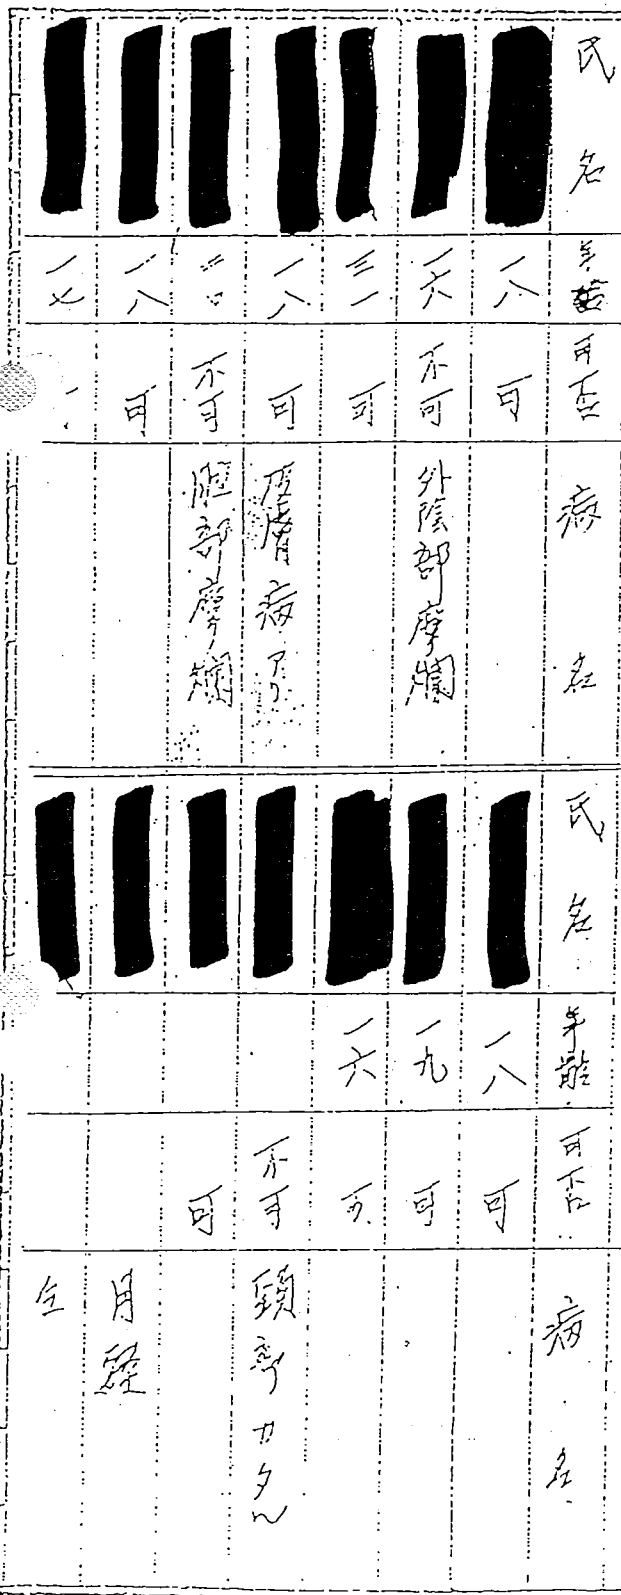 氏名 年齢 可否 病名
一八 可
一六 不可 外陰部摩爛
三一 可
一八 可 皮膚病アリ
二〇 不可 腟部摩爛
一八 可
一七
氏名 年齢 可否 病名
一八 可
一九 可
一六 可
不可 頸部カタル
可
月経
仝